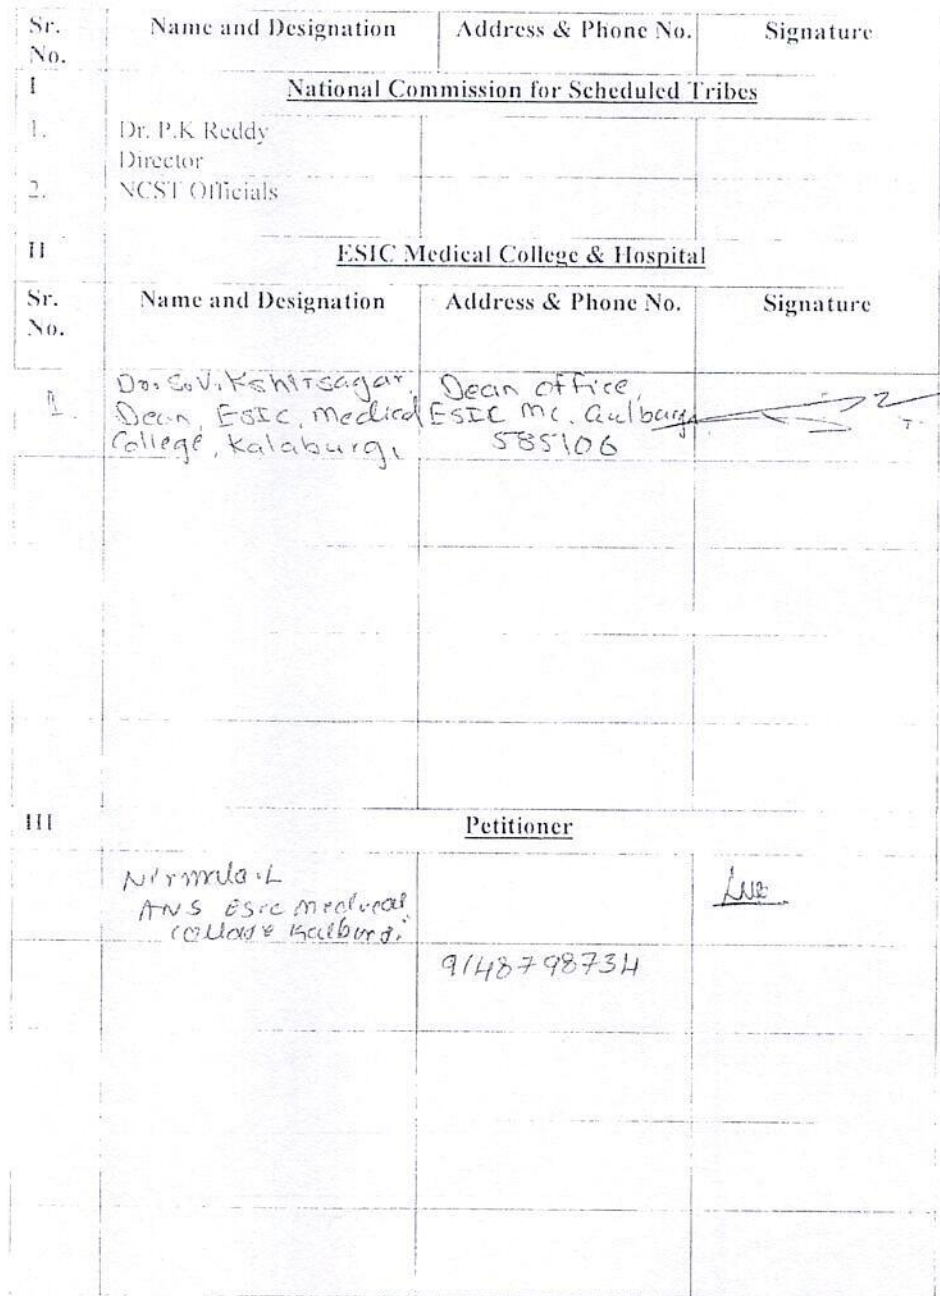 Sr. No. Name and Designation Address & Phone No. Signature
I National Commission for Scheduled Tribes
1. Dr. P.K Reddy
Director
2. NCST Officials
II ESIC Medical College & Hospital
Sr. No. Name and Designation Address & Phone No. Signature
1. Dr. S.V. Kshirsagar, Dean office,
Dean, ESIC, medical ESIC MC. Gulbarga
College, Kalaburgi 585106
III Petitioner
Nirmala.L
ANS ESIC medical
college Kalburgi
9148798734